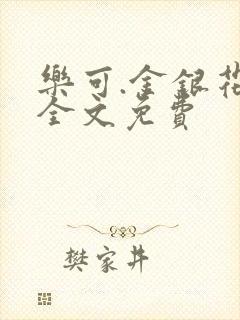 樂可.金銀花
全文免費
樊家井